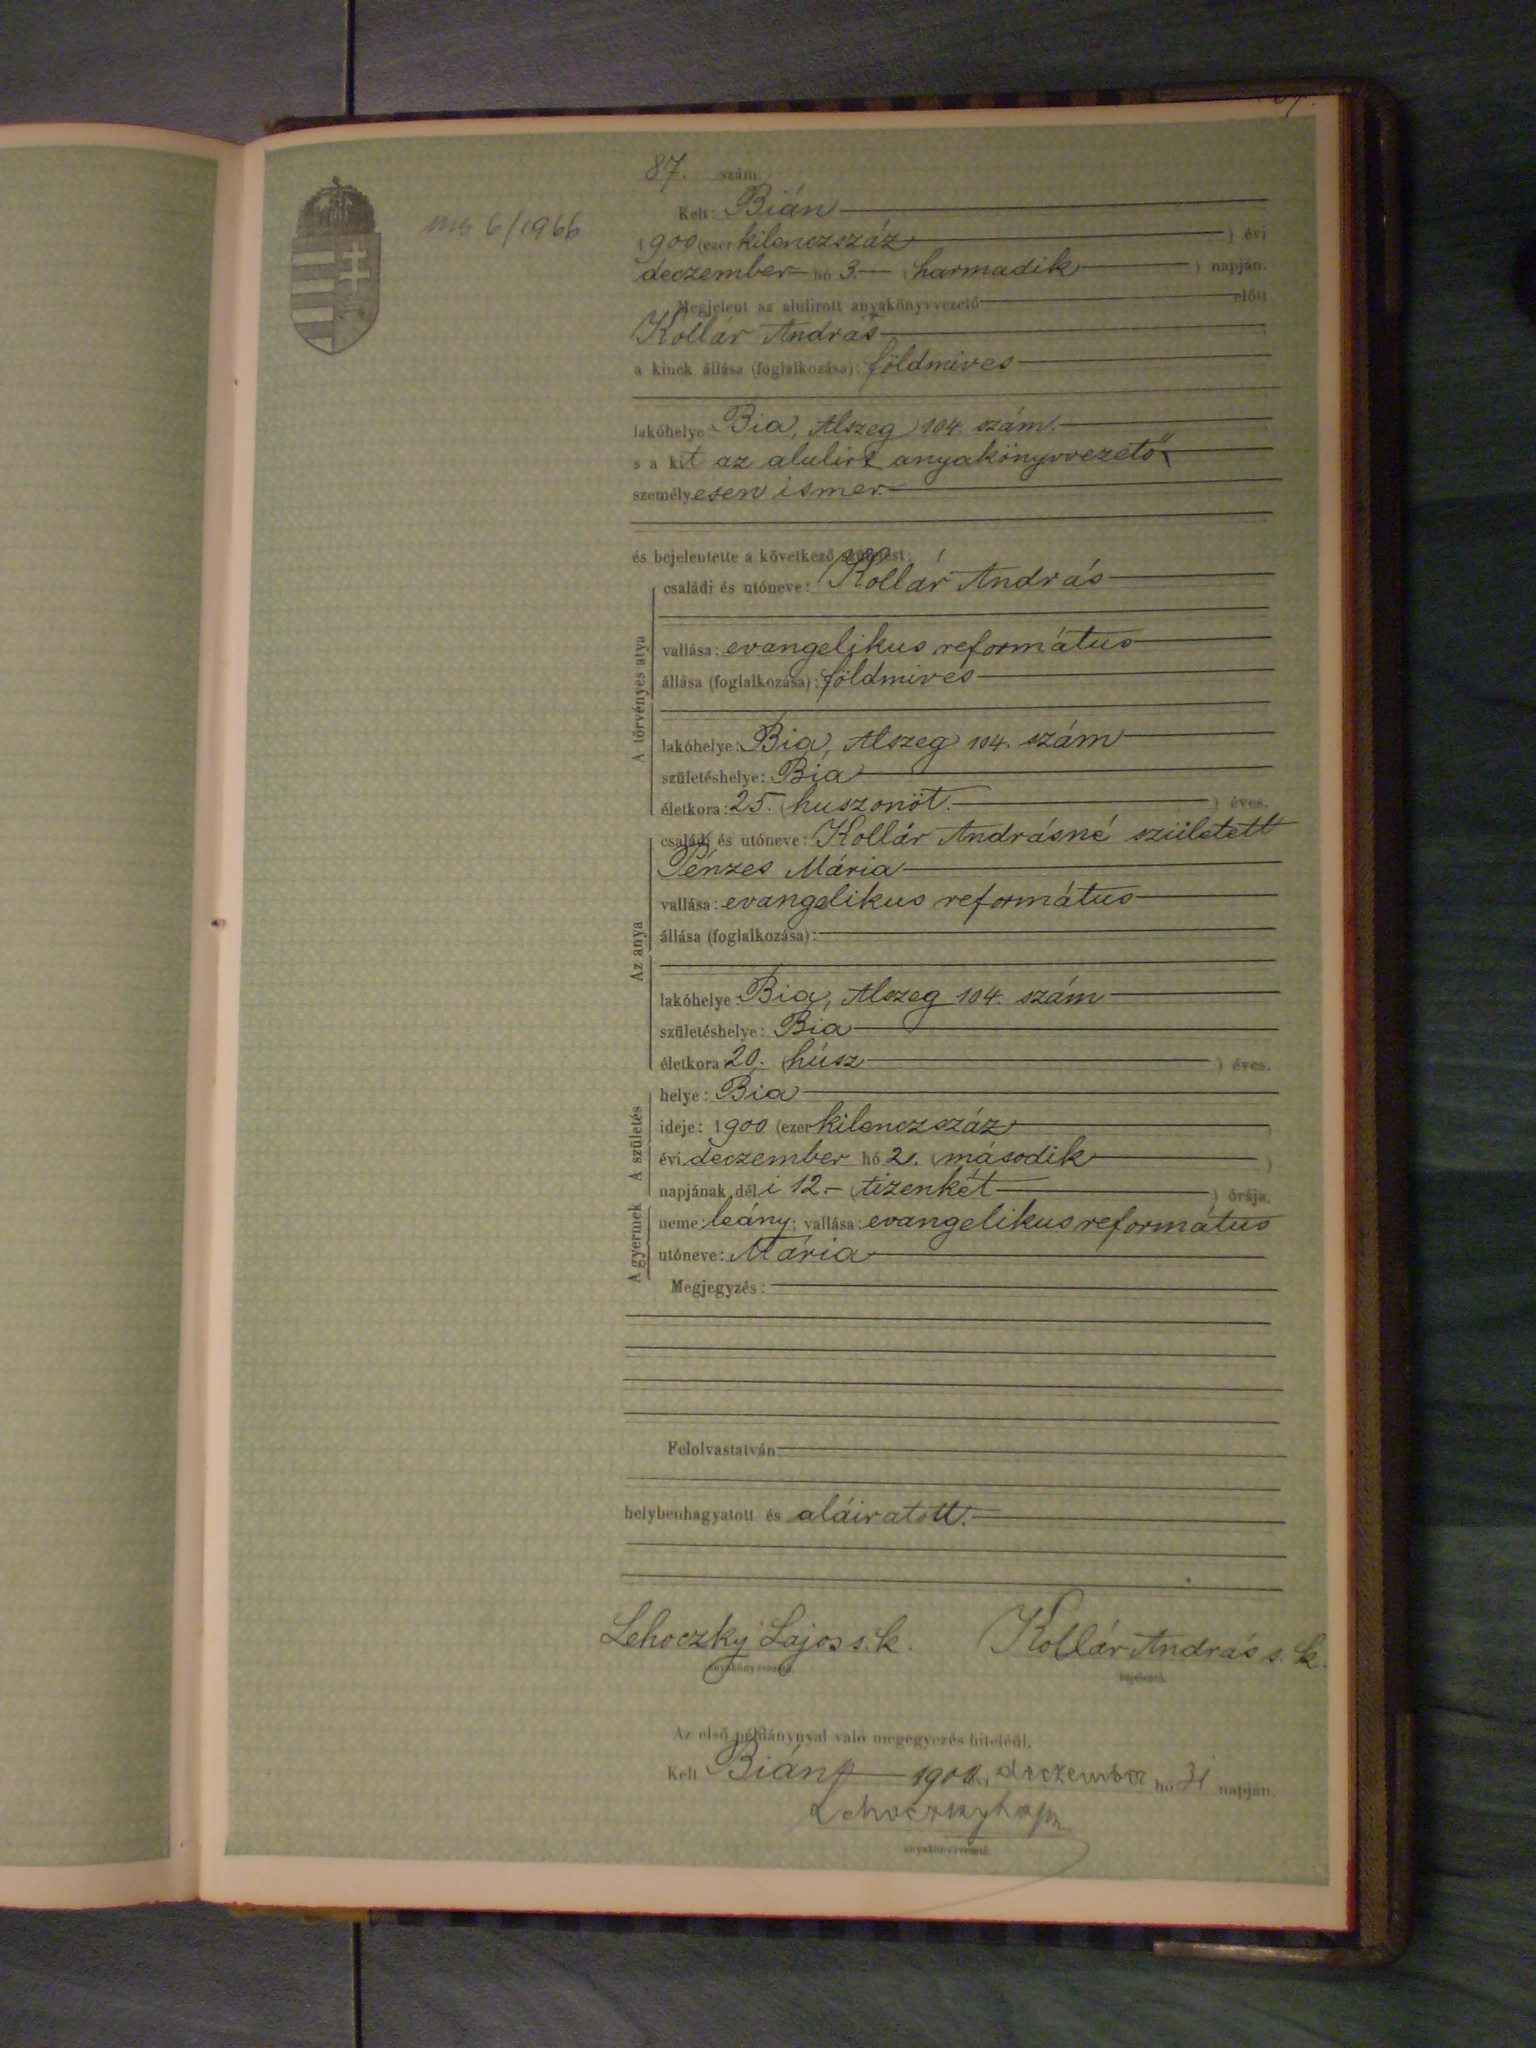 87. szám
6/1966
Kelt: Bián
1900 (ezer kilenczszáz) évi
deczember hó 3. (harmadik) napján.
Megjelent az alulirott anyakönyvvezető előtt
Kollár András
a kinek állása (foglalkozása): földmives
lakóhelye Bia, Alszeg 104. szám.
s a kit az alulirt anyakönyvvezető
személyesen ismer.
és bejelentette a következő születést:
A törvényes atya
családi és utóneve: Kollár András
vallása: evangelikus református
állása (foglalkozása): földmives
lakóhelye: Bia, Alszeg 104. szám
születéshelye: Bia
életkora: 25. (huszonöt.) éves.
Az anya
családi és utóneve: Kollár Andrásné született
Pénzes Mária
vallása: evangelikus református
állása (foglalkozása):
lakóhelye: Bia, Alszeg 104. szám
születéshelye: Bia
életkora 20. (húsz) éves.
A születés
helye: Bia
ideje: 1900 (ezer kilenczszáz
évi deczember hó 2. (második)
napjának déli 12.- (tizenkét) órája.
A gyermek
neme: leány; vallása: evangelikus református
utóneve: Mária
Megjegyzés:
Felolvastatván
helybenhagyatott és aláiratott.
Lehoczky Lajos s. k. Kollár András s. k.
anyakönyvvezető. bejelentő.
Az első példánynyal való megegyezés hiteléül.
Kelt Bián 1900. deczember hó 31 napján.
Lehoczky Lajos
anyakönyvvezető.